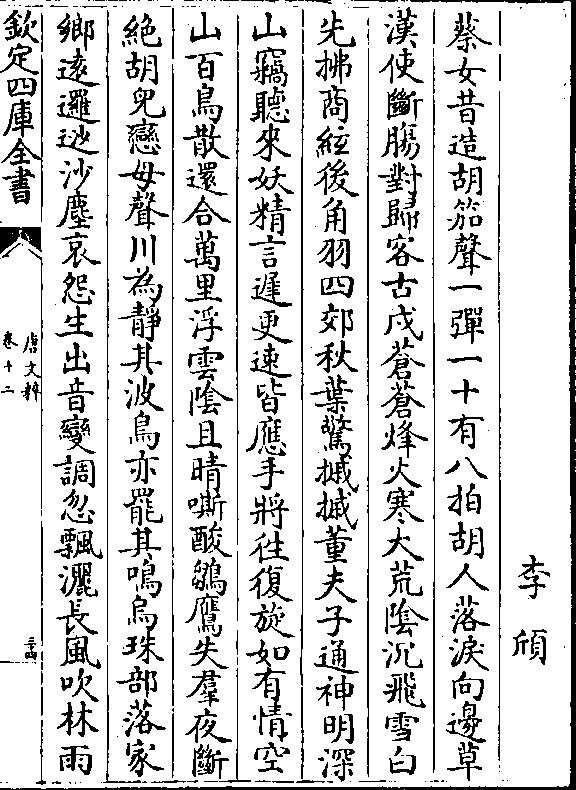 李頎
蔡女昔造胡笳聲一彈一十有八拍胡人落淚向邊草
漢使斷腸對歸客古戍蒼蒼烽火寒大荒陰沉飛雪白
先拂商絃後角羽四郊秋葉驚摵摵董夫子通神明深
山竊聽來妖精言遲更速皆應手將往復旋如有情空
山百鳥散還合萬里浮雲陰且晴嘶酸雛鴈失羣夜斷
絶胡兒戀母聲川為靜其波鳥亦罷其鳴烏珠部落家
鄉遠邏逤沙塵哀怨生幽音變調忽飄灑長風吹林雨
欽定四庫全書
唐文粹
卷十二
三十四